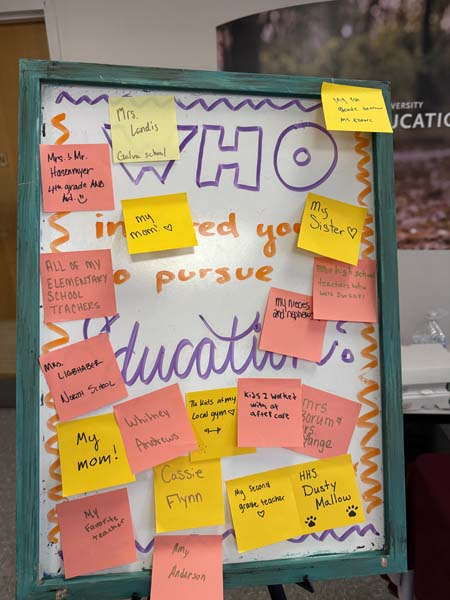 Mrs.
Landis
Galva school
My 1st
Grade teacher
VERSITY
UCATIO
WHO
Mrs. & Mr.
4th grade
my
mom! ♡
My
Sister ♡
in
red you
ALL OF MY
ELEMENTARY
SCHOOL
TEACHERS
o pursue
high school
teachers who
were
My nieces
and nephews
Education?
Mrs.
LIGHHABER
NORTH SCHOOL
My
mom!
Whitney
Andrews
The kids at my
local gym ♡
Kids I worked
with at
after care
mrs
Borum &
rs.
ange
Cassie
Flynn
My second
grade teacher
♡
HHS
Dusty
Mallow
My
favorite
teacher
Amy
Anderson